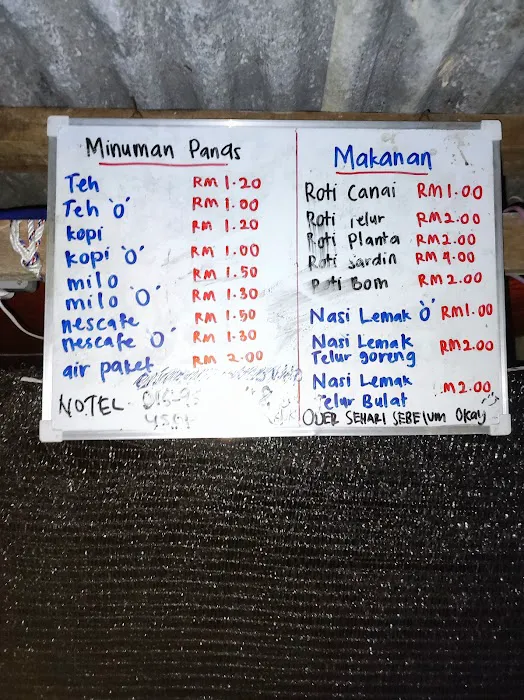 Minuman Panas
Teh RM 1.20
Teh 'O' RM 1.00
kopi RM 1.20
kopi 'O' RM 1.00
milo RM 1.50
milo 'O' RM 1.30
nescafe RM 1.50
nescafe 'O' RM 1.30
air paket RM 2.00
NOTEL
Makanan
Roti Canai RM 1.00
Roti Telur RM 2.00
Roti Planta RM 2.00
Roti Sardin RM 4.00
Roti Bom RM 2.00
Nasi Lemak 'O' RM 1.00
Nasi Lemak RM 2.00
Telur goreng
Nasi Lemak M 2.00
Telur Bulat
ODER SEHARI SEBELUM Okay